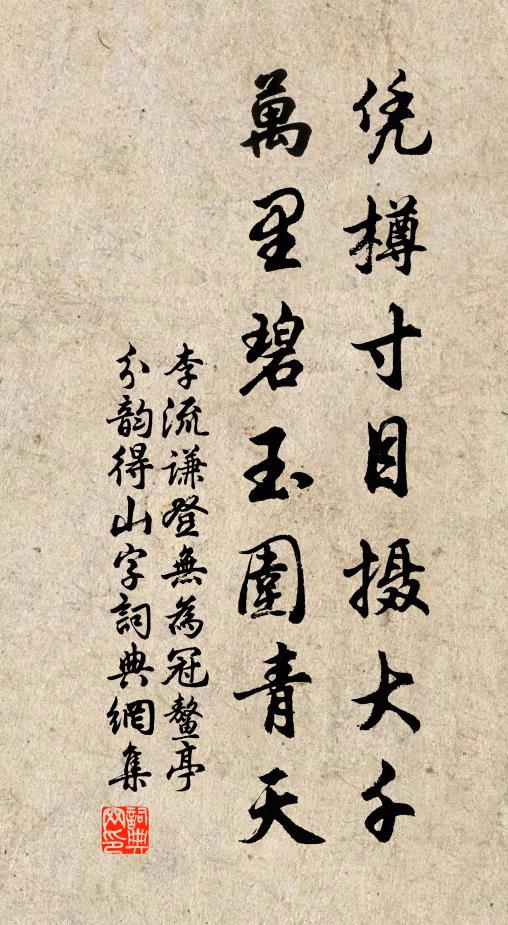 凭樽寸目摄大千
萬里碧玉圍青天
李流谦登無為冠鳌亭
分韵得山字詞典網集
詞典网印